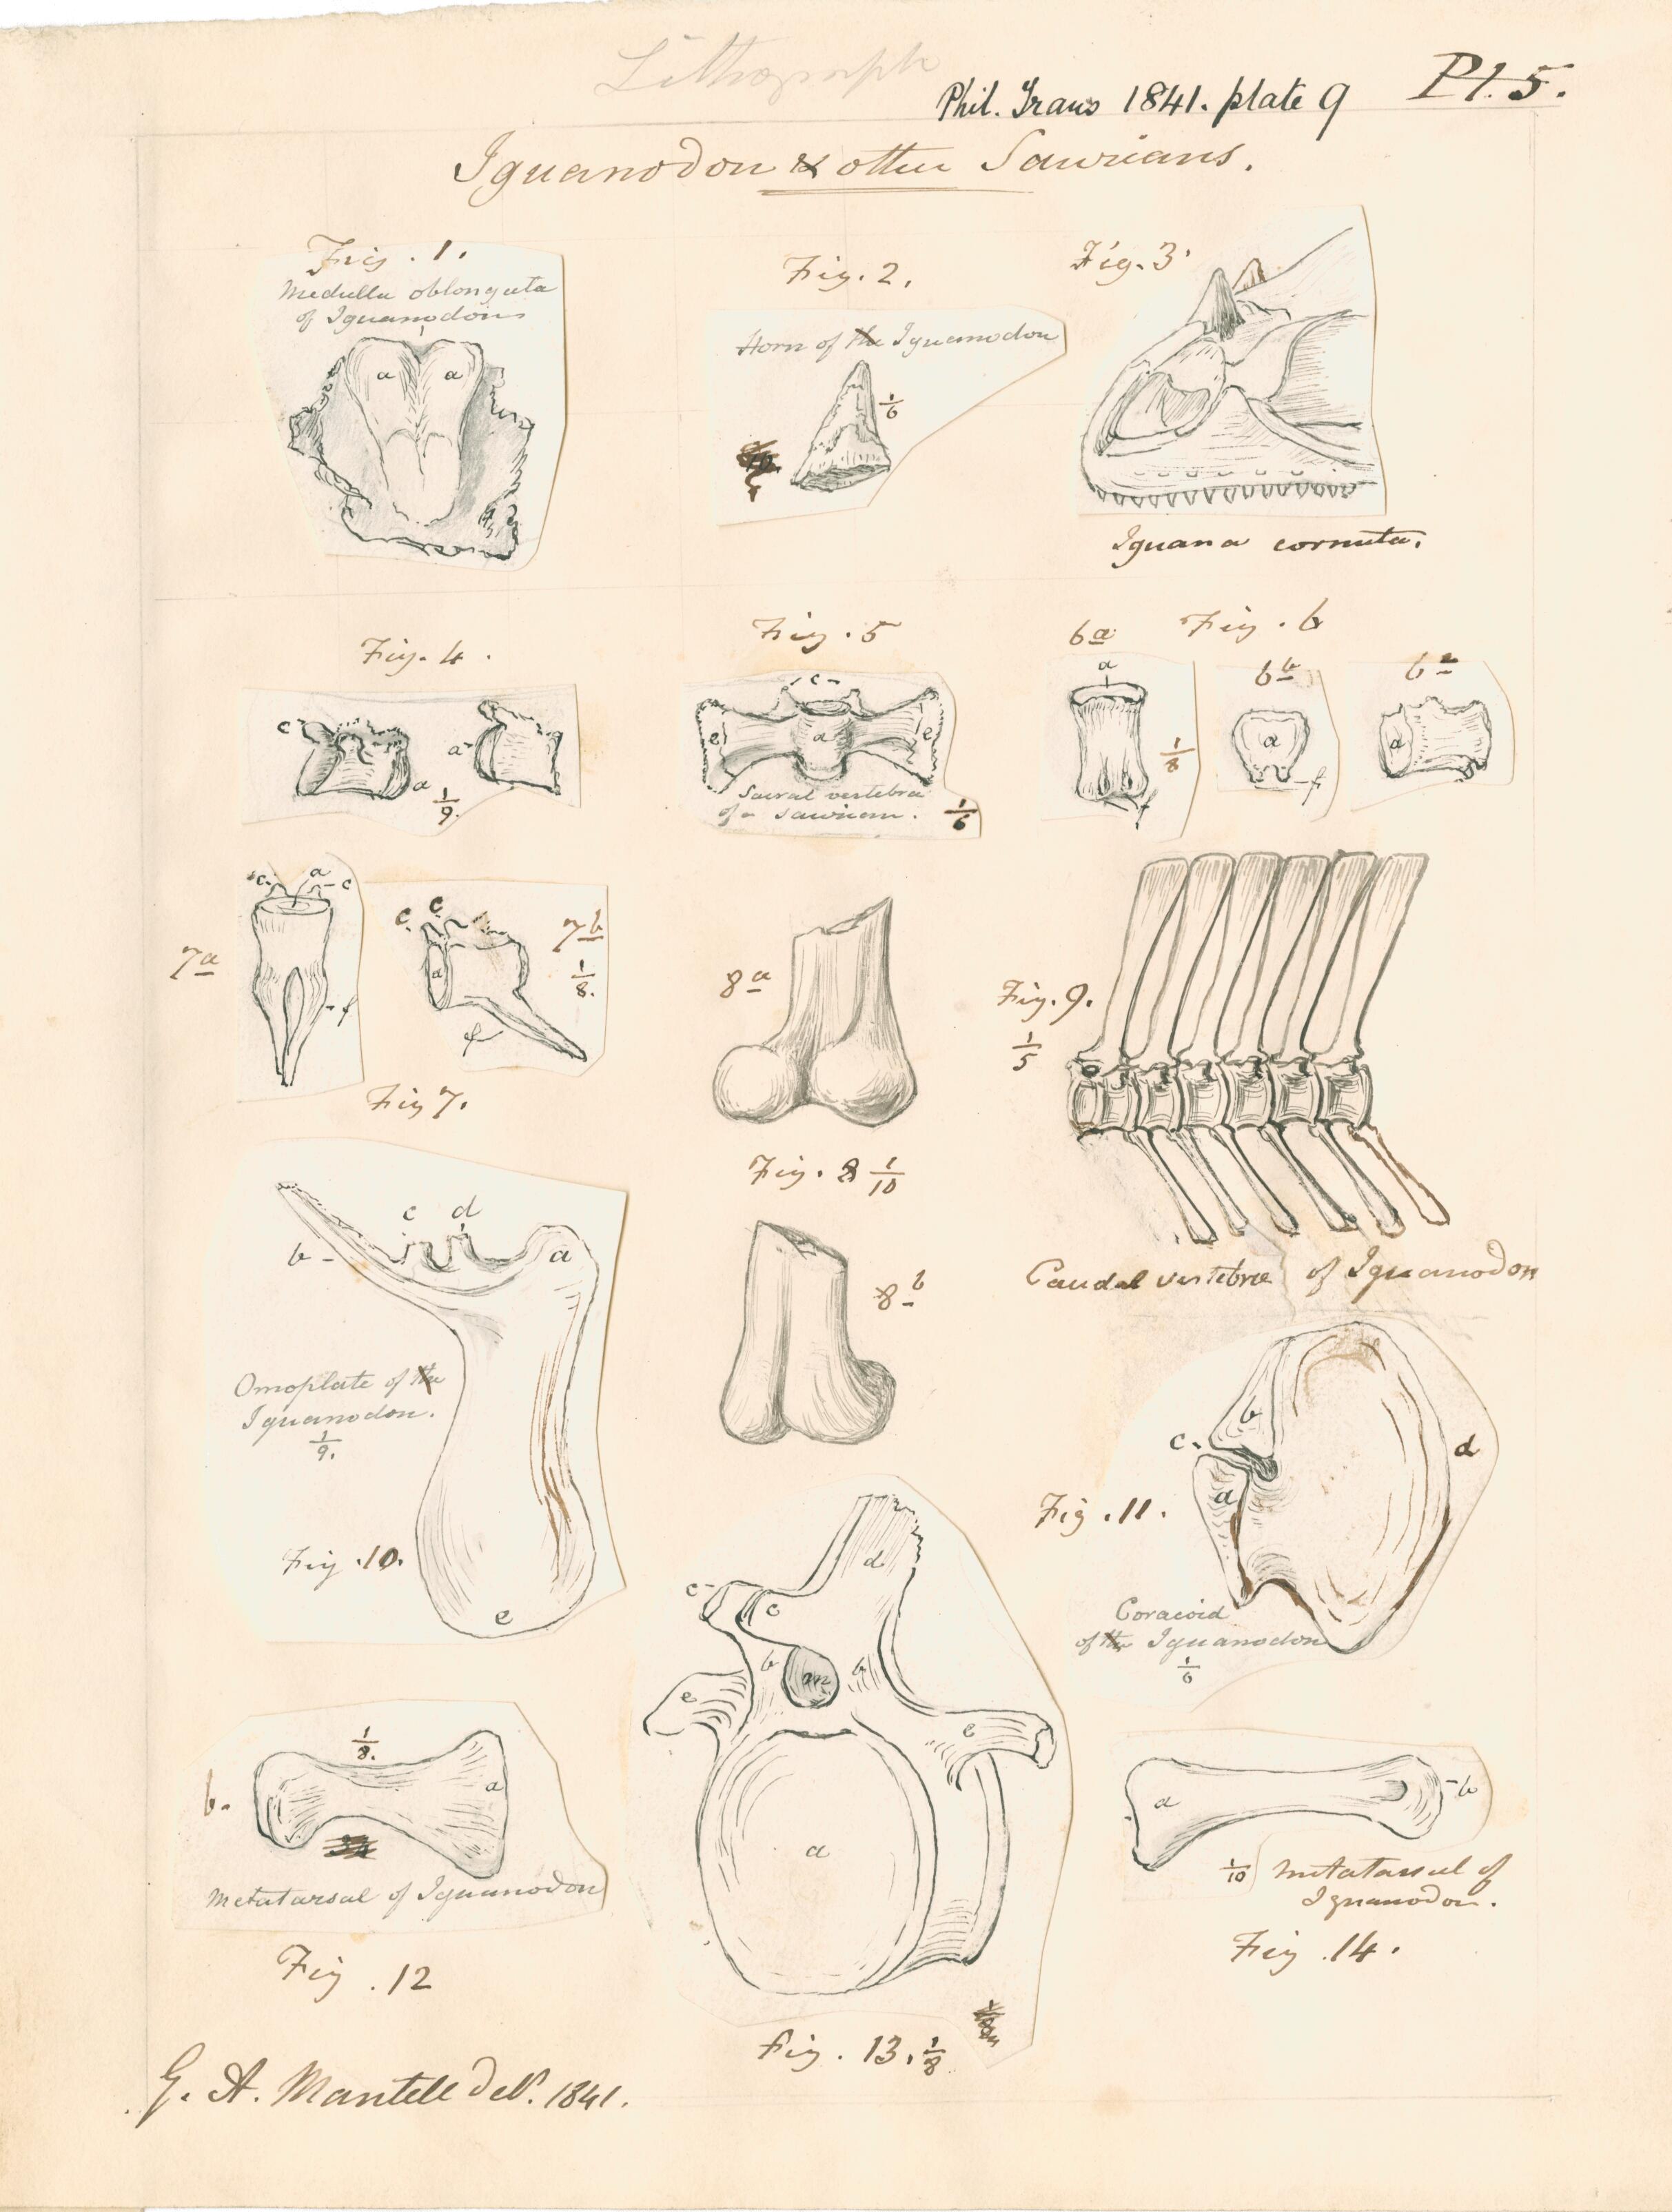 Lithograph
Phil. Trans 1841. plate 9
Pl. 5.
Iguanodon & other Saurians.
Fig. 1.
Medulla oblongata
of Iguanodon
a a
Fig. 2.
Horn of the Iguanodon
1/6
Fig. 3.
Iguana cornuta.
Fig. 4.
c
a
a
1/9.
Fig. 5
c
e a e
Sacral vertebra
of a Saurian.
1/6
Fig. 6
6a
a
f
1/8
6b
a
f
a
7a
c a c
f
c c
a
f
7b
1/8.
Fig 7.
8a
Fig. 8 1/10
8b
Fig. 9.
1/5
Caudal vertebræ of Iguanodon
b c d a
Omoplate of the
Iguanodon.
1/9.
Fig. 10.
e
Fig. 11.
b
c.
a
d
Coracoid
of the Iguanodon
1/6
b.
1/8.
a
Metatarsal of Iguanodon
Fig. 12
d
c c
b m b
e e
a
Fig. 13. 1/8
a b
1/10 Metatarsal of
Iguanodon.
Fig. 14.
G. A. Mantell delt. 1841.